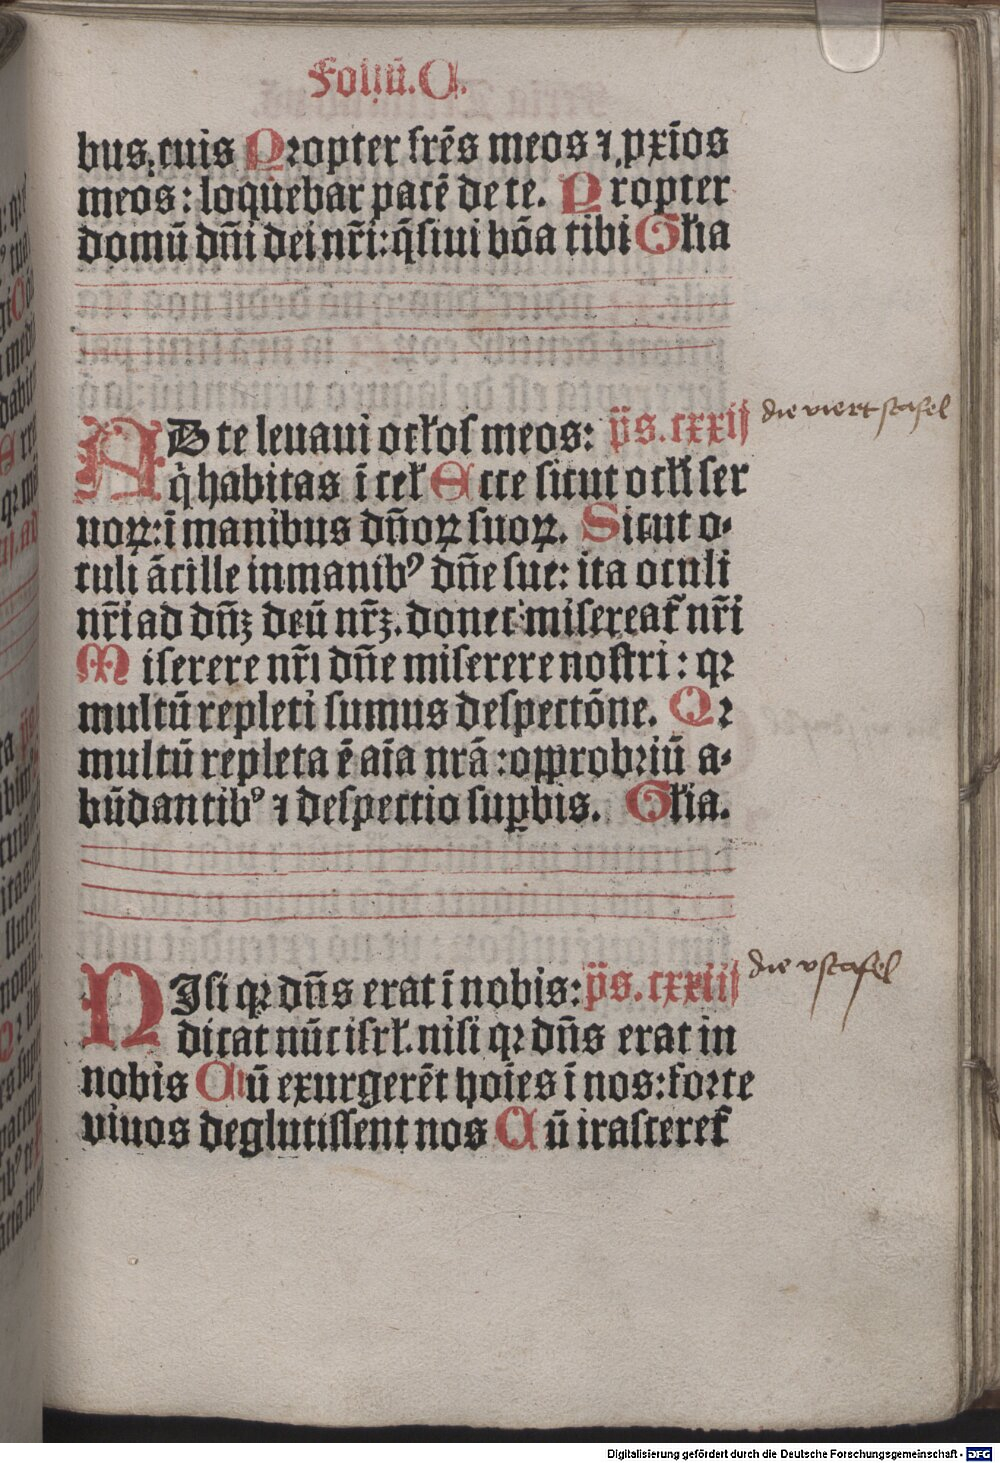 Foliū.C.
bus tuis Propter fr̄es meos ⁊ ꝓxīos
meos: loquebar pacē de te. Propter
domū dn̄i dei nr̄i:q̄siui bōa tibi Gl̄ia
AD te leuaui ocl̄os meos: p̄s.cxxij
die viert stafel
q̇ habitas ī cel̄ Ecce sicut ocl̄i ser
uoꝝ:ī manibus dn̄oꝝ suoꝝ. Sicut o⸗
culi ācille inmanibꝰ dn̄e sue: ita oculi
nr̄i ad dn̄ꝫ deū nr̄ꝫ.donec misereat̄ nr̄i
Miserere nr̄i dn̄e miserere nostri: qꝛ
multū repleti sumus despectōne. Qꝛ
multū repleta ē aīa nrā :opprobꝛiū a⸗
būdantibꝰ ⁊ despectio suꝑbis. Gl̄ia.
NIsi qꝛ dn̄s erat ī nobis: p̄s.cxxiij
die v stafel
dicat nūc isrl̄.nisi qꝛ dn̄s erat in
nobis Cū exurgerēt hoīes ī nos:foꝛte
viuos deglutissent nos Cū irasceret̄
Digitalisierung gefördert durch die Deutsche Forschungsgemeinschaft - DFG